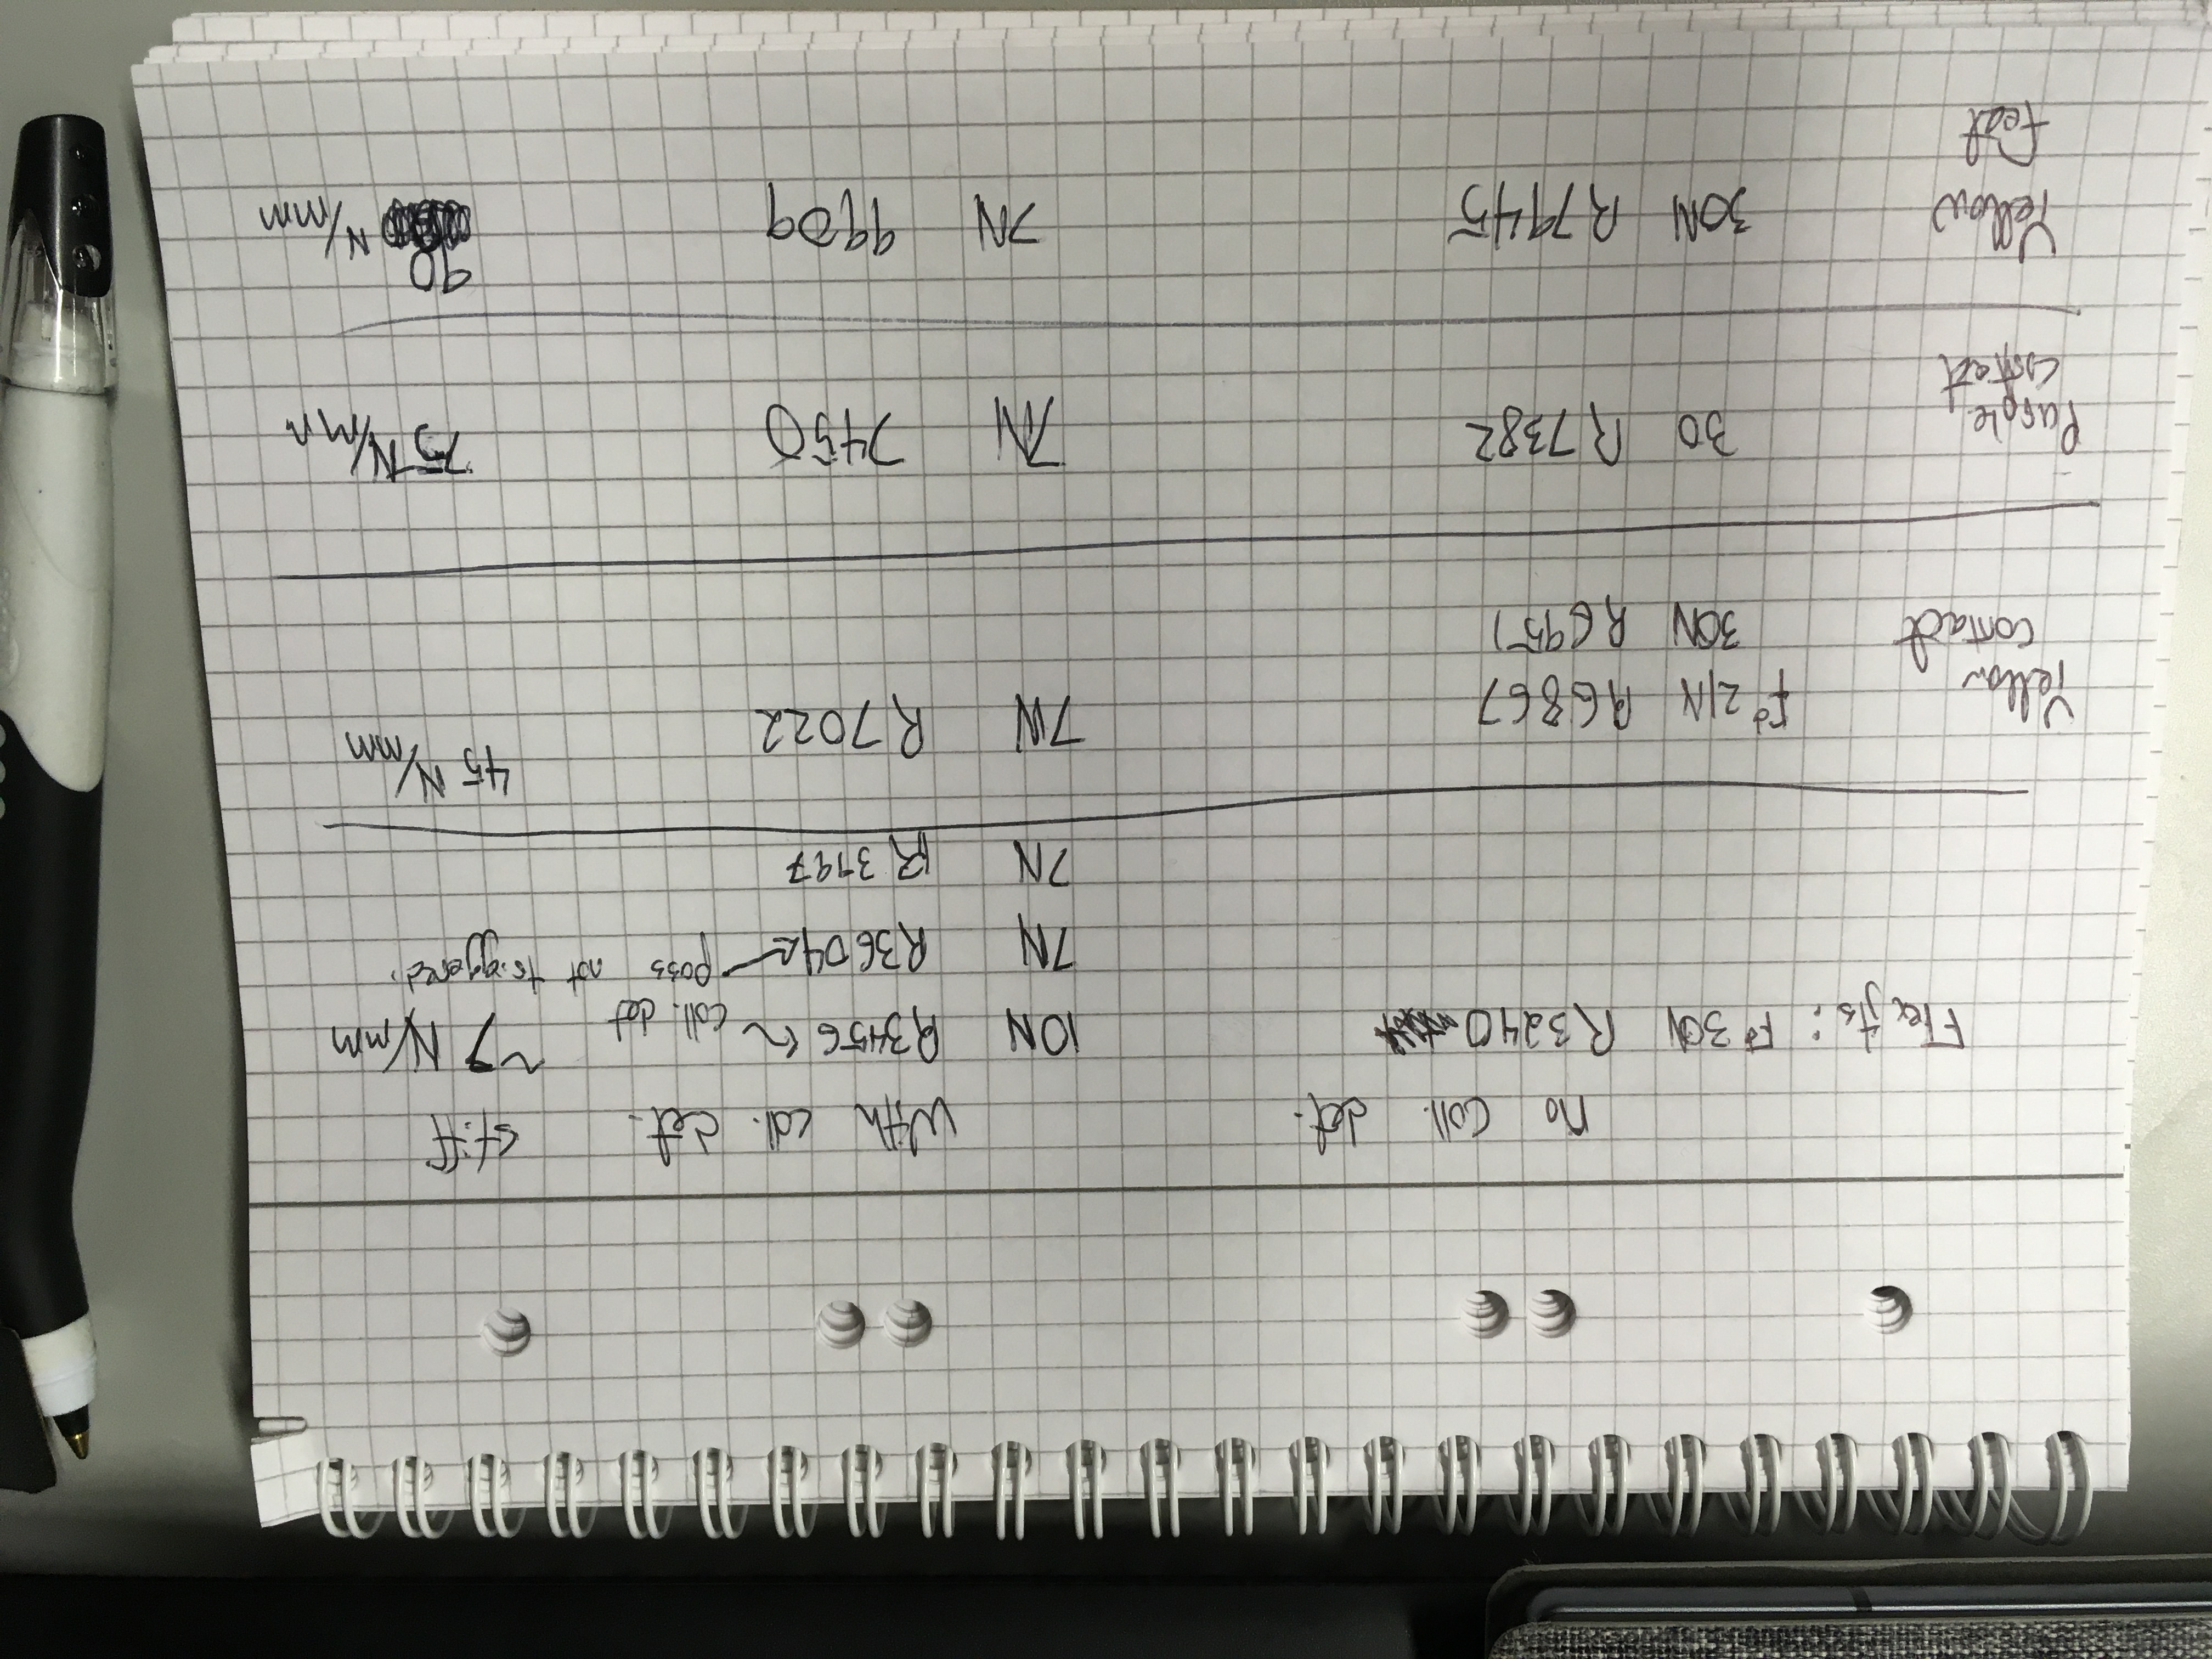 no coll. det. With coll. det. stiff
Flex jts: Fd 30N R3240 10N R3456 coll. det ~7 N/mm
7N R3604 poss not triggered.
7N R3797
Yellow contact Fd 21N R6867 7N R7022 45 N/mm
30N R6951
Purple contact 30 R7382 7N 7450 75 N/mm
Yellow feat 30N R7945 7N 9909 90 N/mm